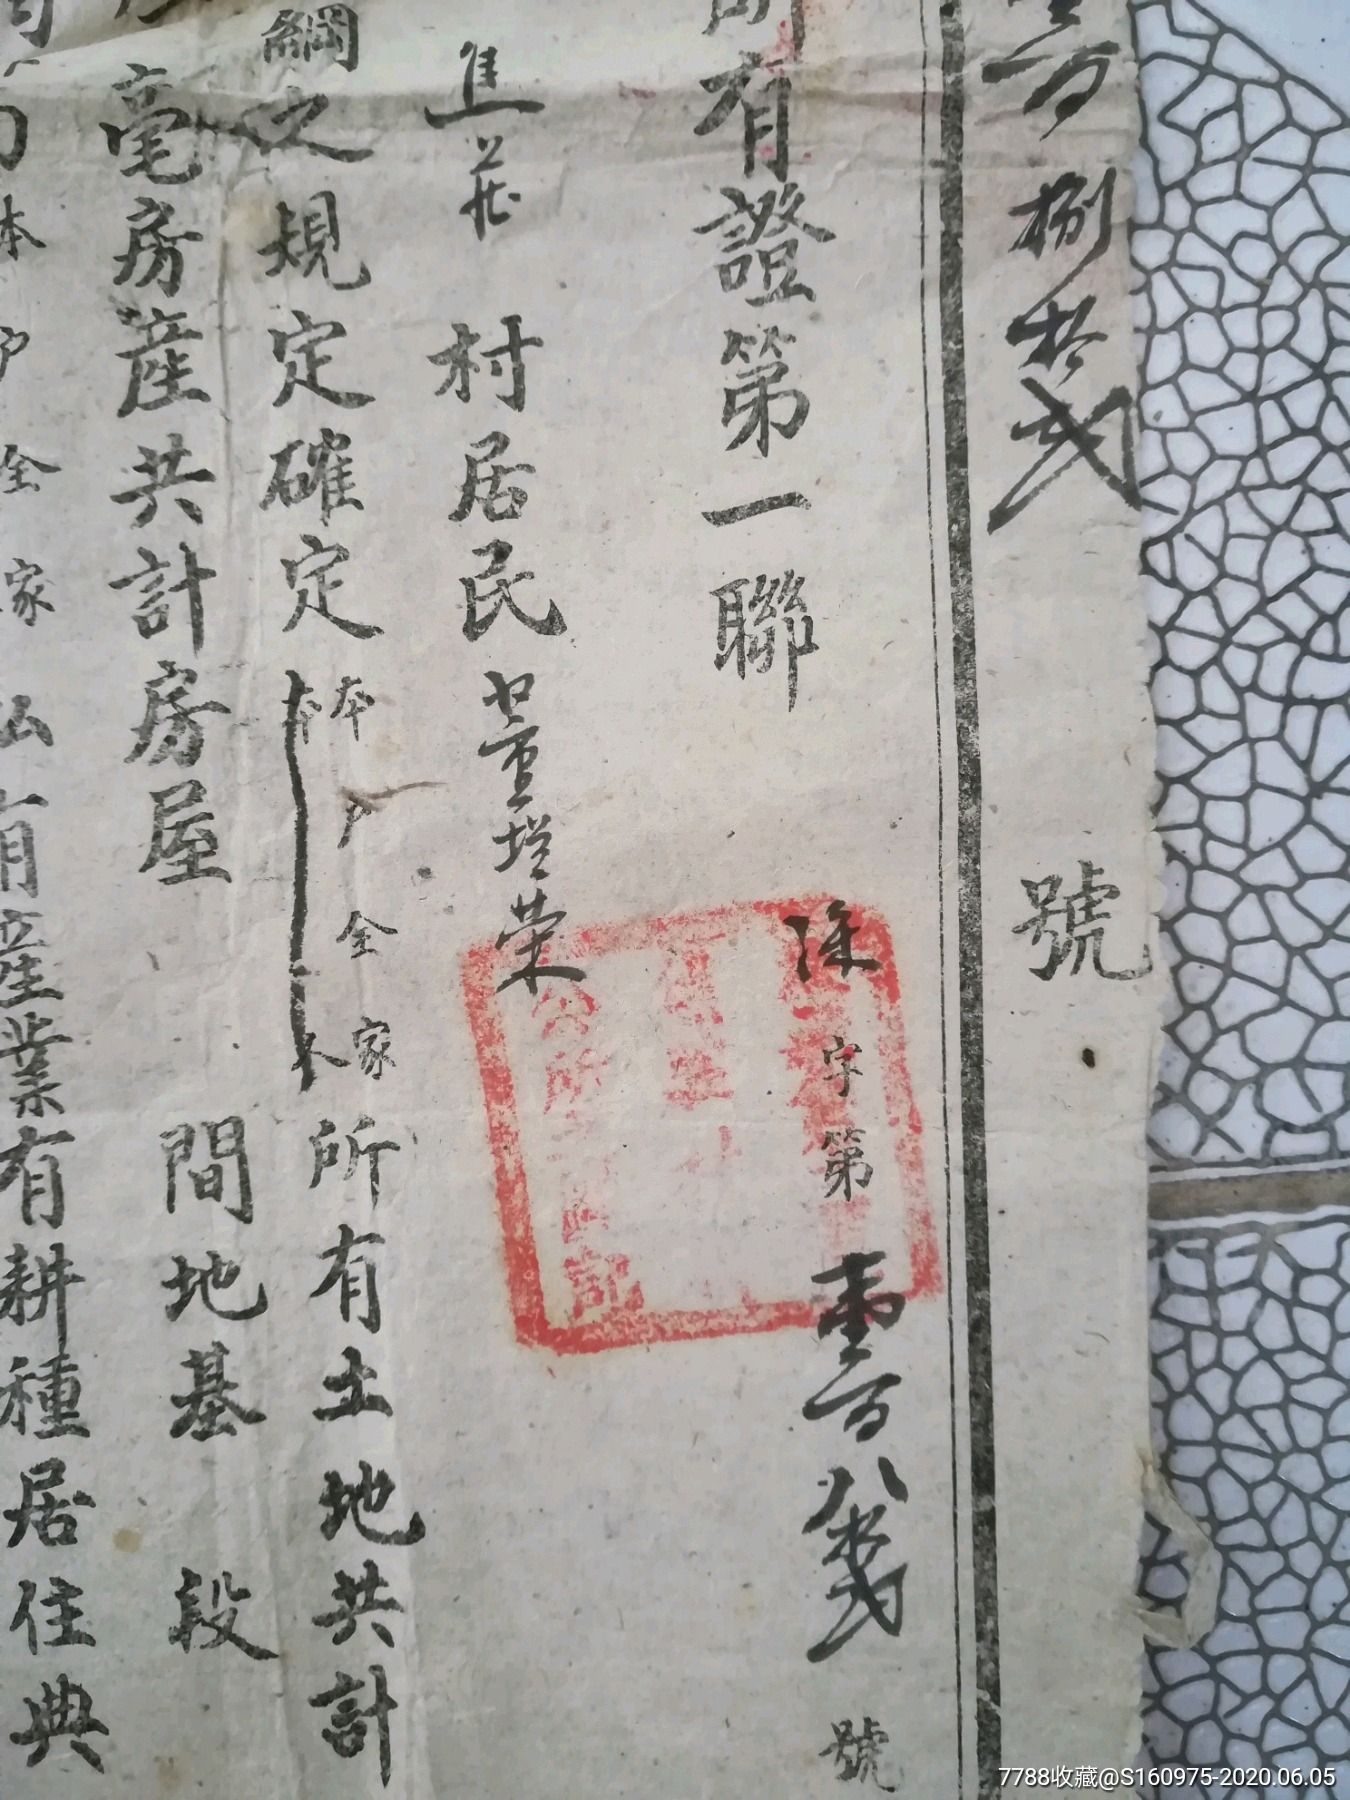 壹百捌拾弍 號
所有證第一聯
字第壹百八拾弍號
進莊 村居民 董增荣
綱之規定確定本户全家所有土地共計
毫房産共計房屋 間地基 段
本户全家私有産業有耕種居住典
7788收藏@S160975-2020.06.05